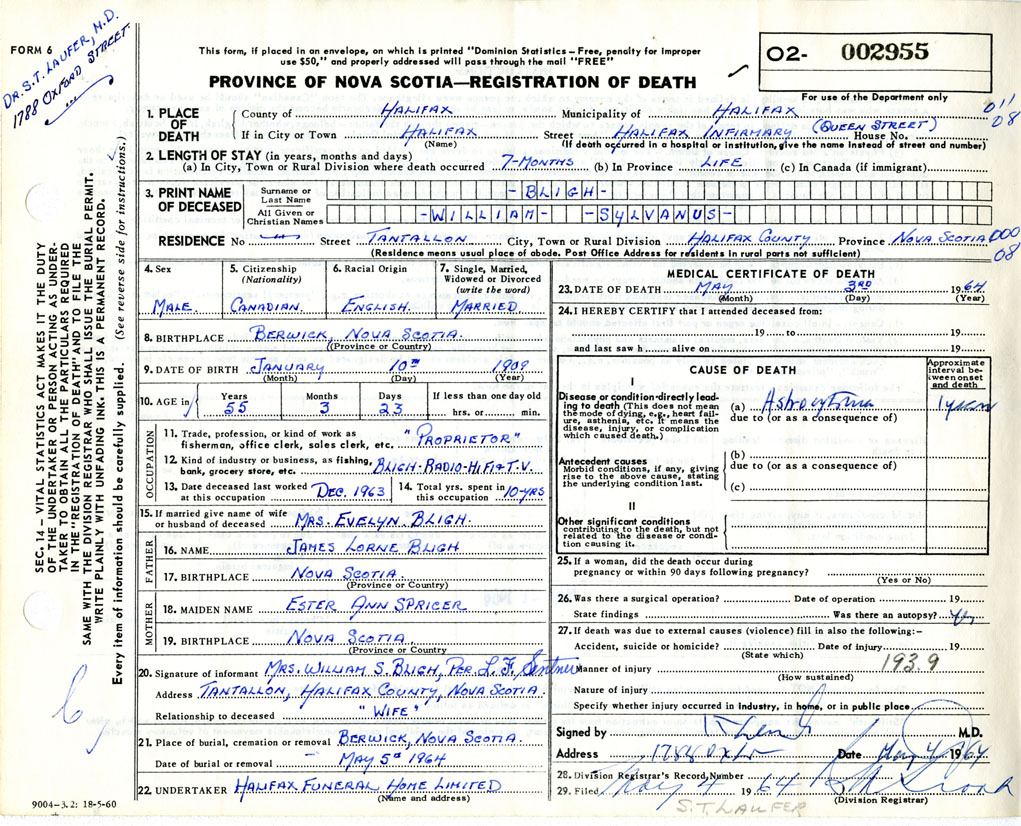 DR. S.T. LAUFER, M.D.
1788 OXFORD STREET.
FORM 6
This form, if placed in an envelope, on which is printed "Dominion Statistics – Free, penalty for improper
use $50," and properly addressed will pass through the mail "FREE"
PROVINCE OF NOVA SCOTIA—REGISTRATION OF DEATH
02- 002955
For use of the Department only
SEC. 14 – VITAL STATISTICS ACT MAKES IT THE DUTY
OF THE UNDERTAKER OR PERSON ACTING AS UNDER-
TAKER TO OBTAIN ALL THE PARTICULARS REQUIRED
IN THE "REGISTRATION OF DEATH" AND TO FILE THE
SAME WITH THE DIVISION REGISTRAR WHO SHALL ISSUE THE BURIAL PERMIT.
WRITE PLAINLY WITH UNFADING INK. THIS IS A PERMANENT RECORD.
Every item of information should be carefully supplied. (See reverse side for instructions.)
1. PLACE OF DEATH
County of HALIFAX Municipality of HALIFAX 011
08
If in City or Town HALIFAX Street HALIFAX INFIRMARY (QUEEN STREET) House No.
(Name) (If death occurred in a hospital or institution, give the name instead of street and number)
2. LENGTH OF STAY (in years, months and days)
(a) In City, Town or Rural Division where death occurred 7-MONTHS (b) In Province LIFE (c) In Canada (if immigrant)
3. PRINT NAME OF DECEASED
Surname or Last Name -BLIGH-
All Given or Christian Names -WILLIAM- -SYLVANUS-
RESIDENCE No — Street TANTALLON City, Town or Rural Division HALIFAX COUNTY Province NOVA SCOTIA 000
08
(Residence means usual place of abode. Post Office Address for residents in rural parts not sufficient)
4. Sex
MALE.
5. Citizenship (Nationality)
CANADIAN.
6. Racial Origin
ENGLISH.
7. Single, Married, Widowed or Divorced (write the word)
MARRIED.
8. BIRTHPLACE BERWICK, NOVA SCOTIA.
(Province or Country)
9. DATE OF BIRTH JANUARY 10TH 1909
(Month) (Day) (Year)
10. AGE in Years 55 Months 3 Days 23 If less than one day old
hrs. or min.
OCCUPATION
11. Trade, profession, or kind of work as
fisherman, office clerk, sales clerk, etc. "PROPRIETOR"
12. Kind of industry or business, as fishing,
bank, grocery store, etc. BLIGH-RADIO-HIFI & T.V.
13. Date deceased last worked
at this occupation DEC. 1963
14. Total yrs. spent in
this occupation 10-YRS
15. If married give name of wife
or husband of deceased MRS. EVELYN BLIGH.
FATHER
16. NAME JAMES LORNE BLIGH
17. BIRTHPLACE NOVA SCOTIA
(Province or Country)
MOTHER
18. MAIDEN NAME ESTER ANN SPRICER
19. BIRTHPLACE NOVA SCOTIA
(Province or Country
20. Signature of informant MRS. WILLIAM S. BLIGH, PER. L. F. Sentner
Address TANTALLON, HALIFAX COUNTY, NOVA SCOTIA.
Relationship to deceased "WIFE"
21. Place of burial, cremation or removal BERWICK, NOVA SCOTIA.
Date of burial or removal – MAY 5th 1964
22. UNDERTAKER HALIFAX FUNERAL HOME LIMITED
(Name and address)
9004-3.2: 18-5-60
MEDICAL CERTIFICATE OF DEATH
23. DATE OF DEATH MAY 3RD 1964
(Month) (Day) (Year)
24. I HEREBY CERTIFY that I attended deceased from:
19 to 19
and last saw h alive on 19
CAUSE OF DEATH
Approximate interval between onset and death
I
Disease or condition directly lead-
ing to death (This does not mean
the mode of dying, e.g., heart fail-
ure, asthenia, etc. It means the
disease, injury, or complication
which caused death.)
(a) Astrocytoma 1 year
due to (or as a consequence of)
Antecedent causes
Morbid conditions, if any, giving
rise to the above cause, stating
the underlying condition last.
(b)
due to (or as a consequence of)
(c)
II
Other significant conditions
contributing to the death, but not
related to the disease or condi-
tion causing it.
25. If a woman, did the death occur during
pregnancy or within 90 days following pregnancy?
(Yes or No)
26. Was there a surgical operation? Date of operation 19
State findings Was there an autopsy? Yes
27. If death was due to external causes (violence) fill in also the following:–
Accident, suicide or homicide? Date of injury 19
(State which)
Manner of injury 193.9
(How sustained)
Nature of injury
Specify whether injury occurred in industry, in home, or in public place
Signed by M.D.
Address 1788 Oxford Date May 4 1964
28. Division Registrar's Record Number
29. Filed May 4 1964
(Division Registrar)
S.T. LAUFER